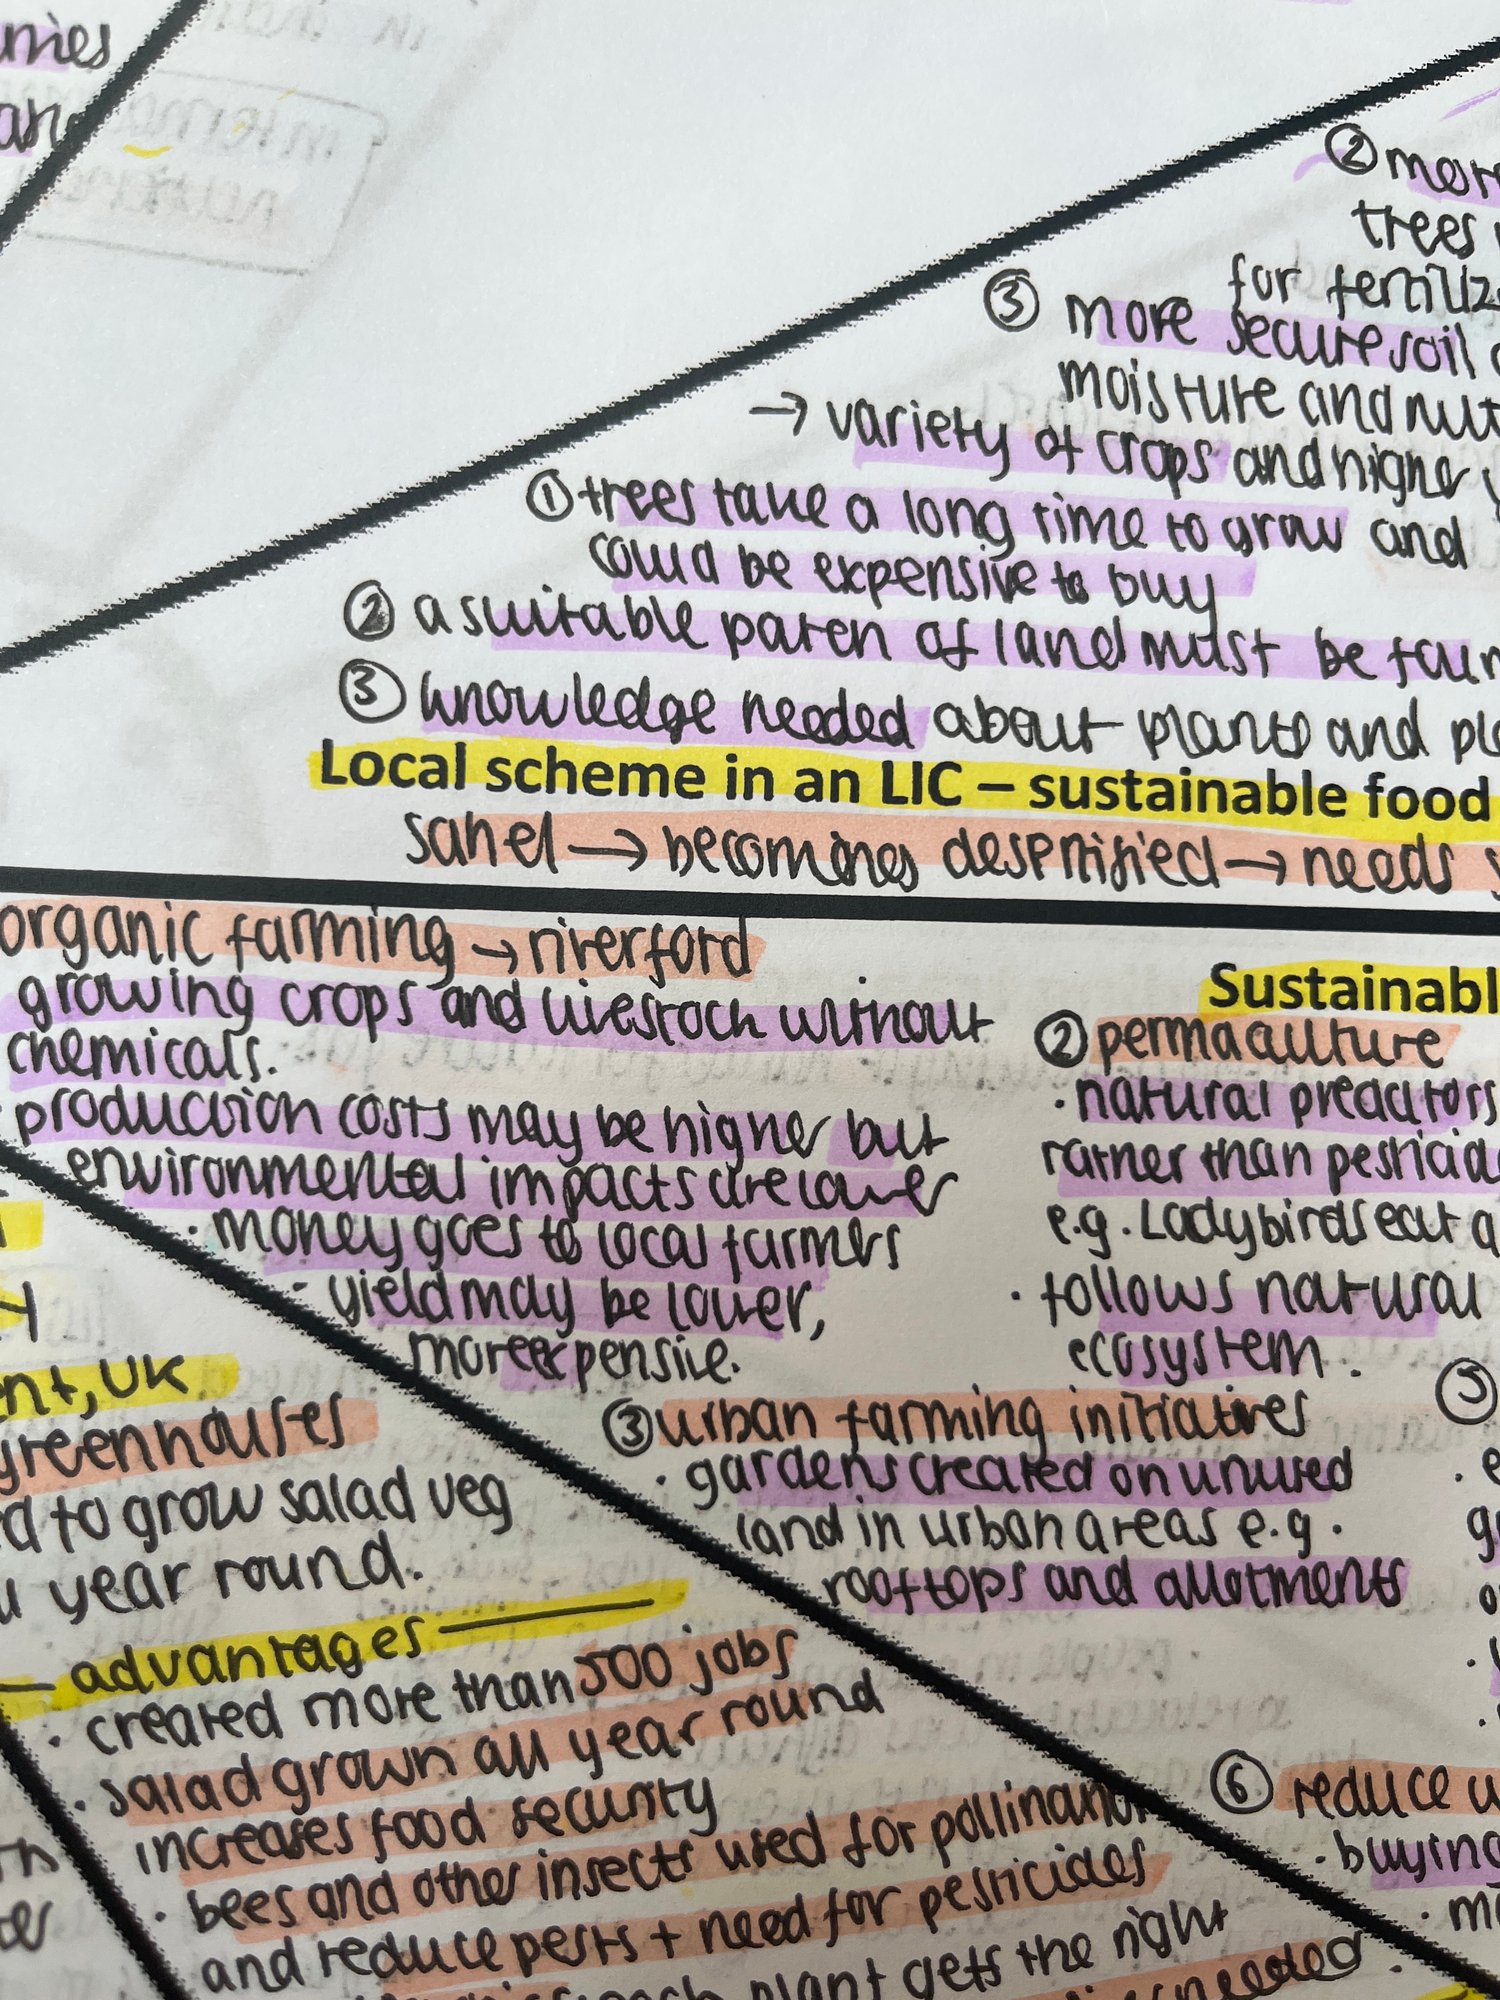 ② more
trees
for
③ more secure soil
moisture and
→ variety of crops and higher
① trees take a long time to grow and
could be expensive to buy
② a suitable patch of land must be
③ knowledge needed about plants and
Local scheme in an LIC – sustainable food
sahel → becomes desertified → needs
organic farming → riverford
growing crops and livestock without
chemicals.
production costs may be higher but
environmental impacts are lower
· money goes to local farmers
· yield may be lower,
more expensive.
Sustainabl
② permaculture
· natural predators
rather than
e.g. Ladybirds eat
· follows natural
ecosystem.
③ urban farming initiatives
· gardens created on unused
land in urban areas e.g.
rooftops and allotments
⑤
⑥ reduce
· buying
UK
greenhouses
to grow salad veg
year round.
— advantages —
· created more than 500 jobs
· salad grown all year round
increases food security
· bees and other insects used for pollination
and reduce pests + need for pesticides
plant gets the right
needed